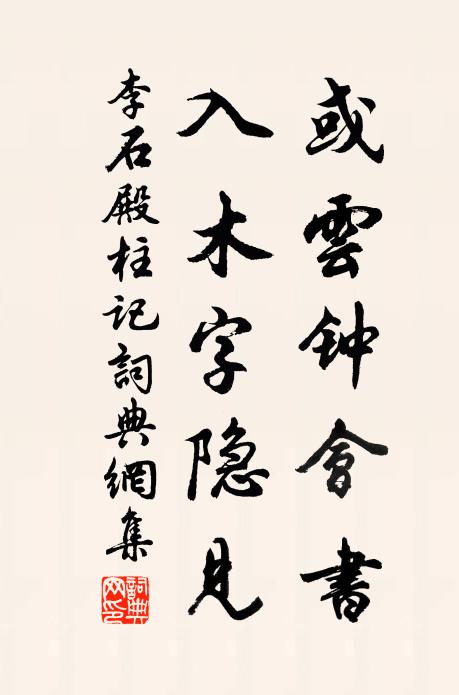 或雲钟會書
入木字隐見
李石殿柱记詞典網集
詞典網印